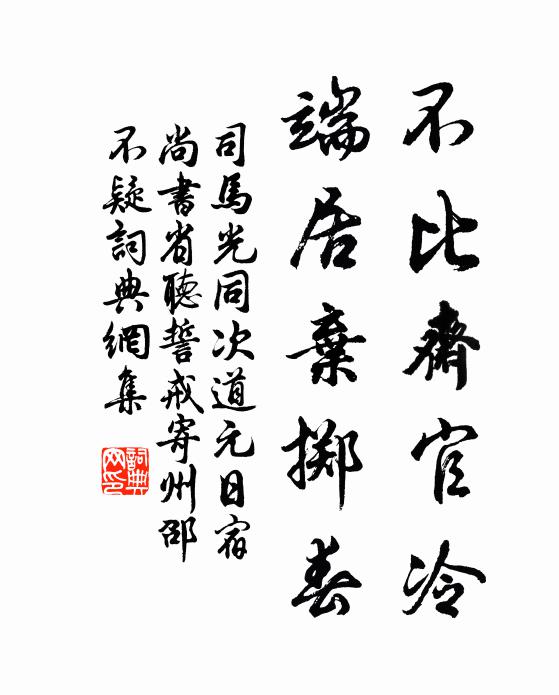 不比齋官冷
端居棄擲春
司馬光同次道元日宿
尚書省聽誓戒寄州邵
不疑詞典網集
詞典网印